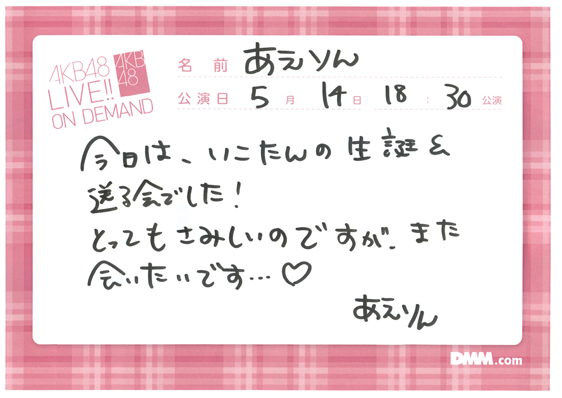 AKB48
LIVE!!
ON DEMAND
AKB
48
名前 あえりん
公演日 5月 14日 18:30公演
今日は、いこたんの生誕&
送る会でした!
とってもさみしいのですが、また
会いたいです…♡
あえりん
DMM.com